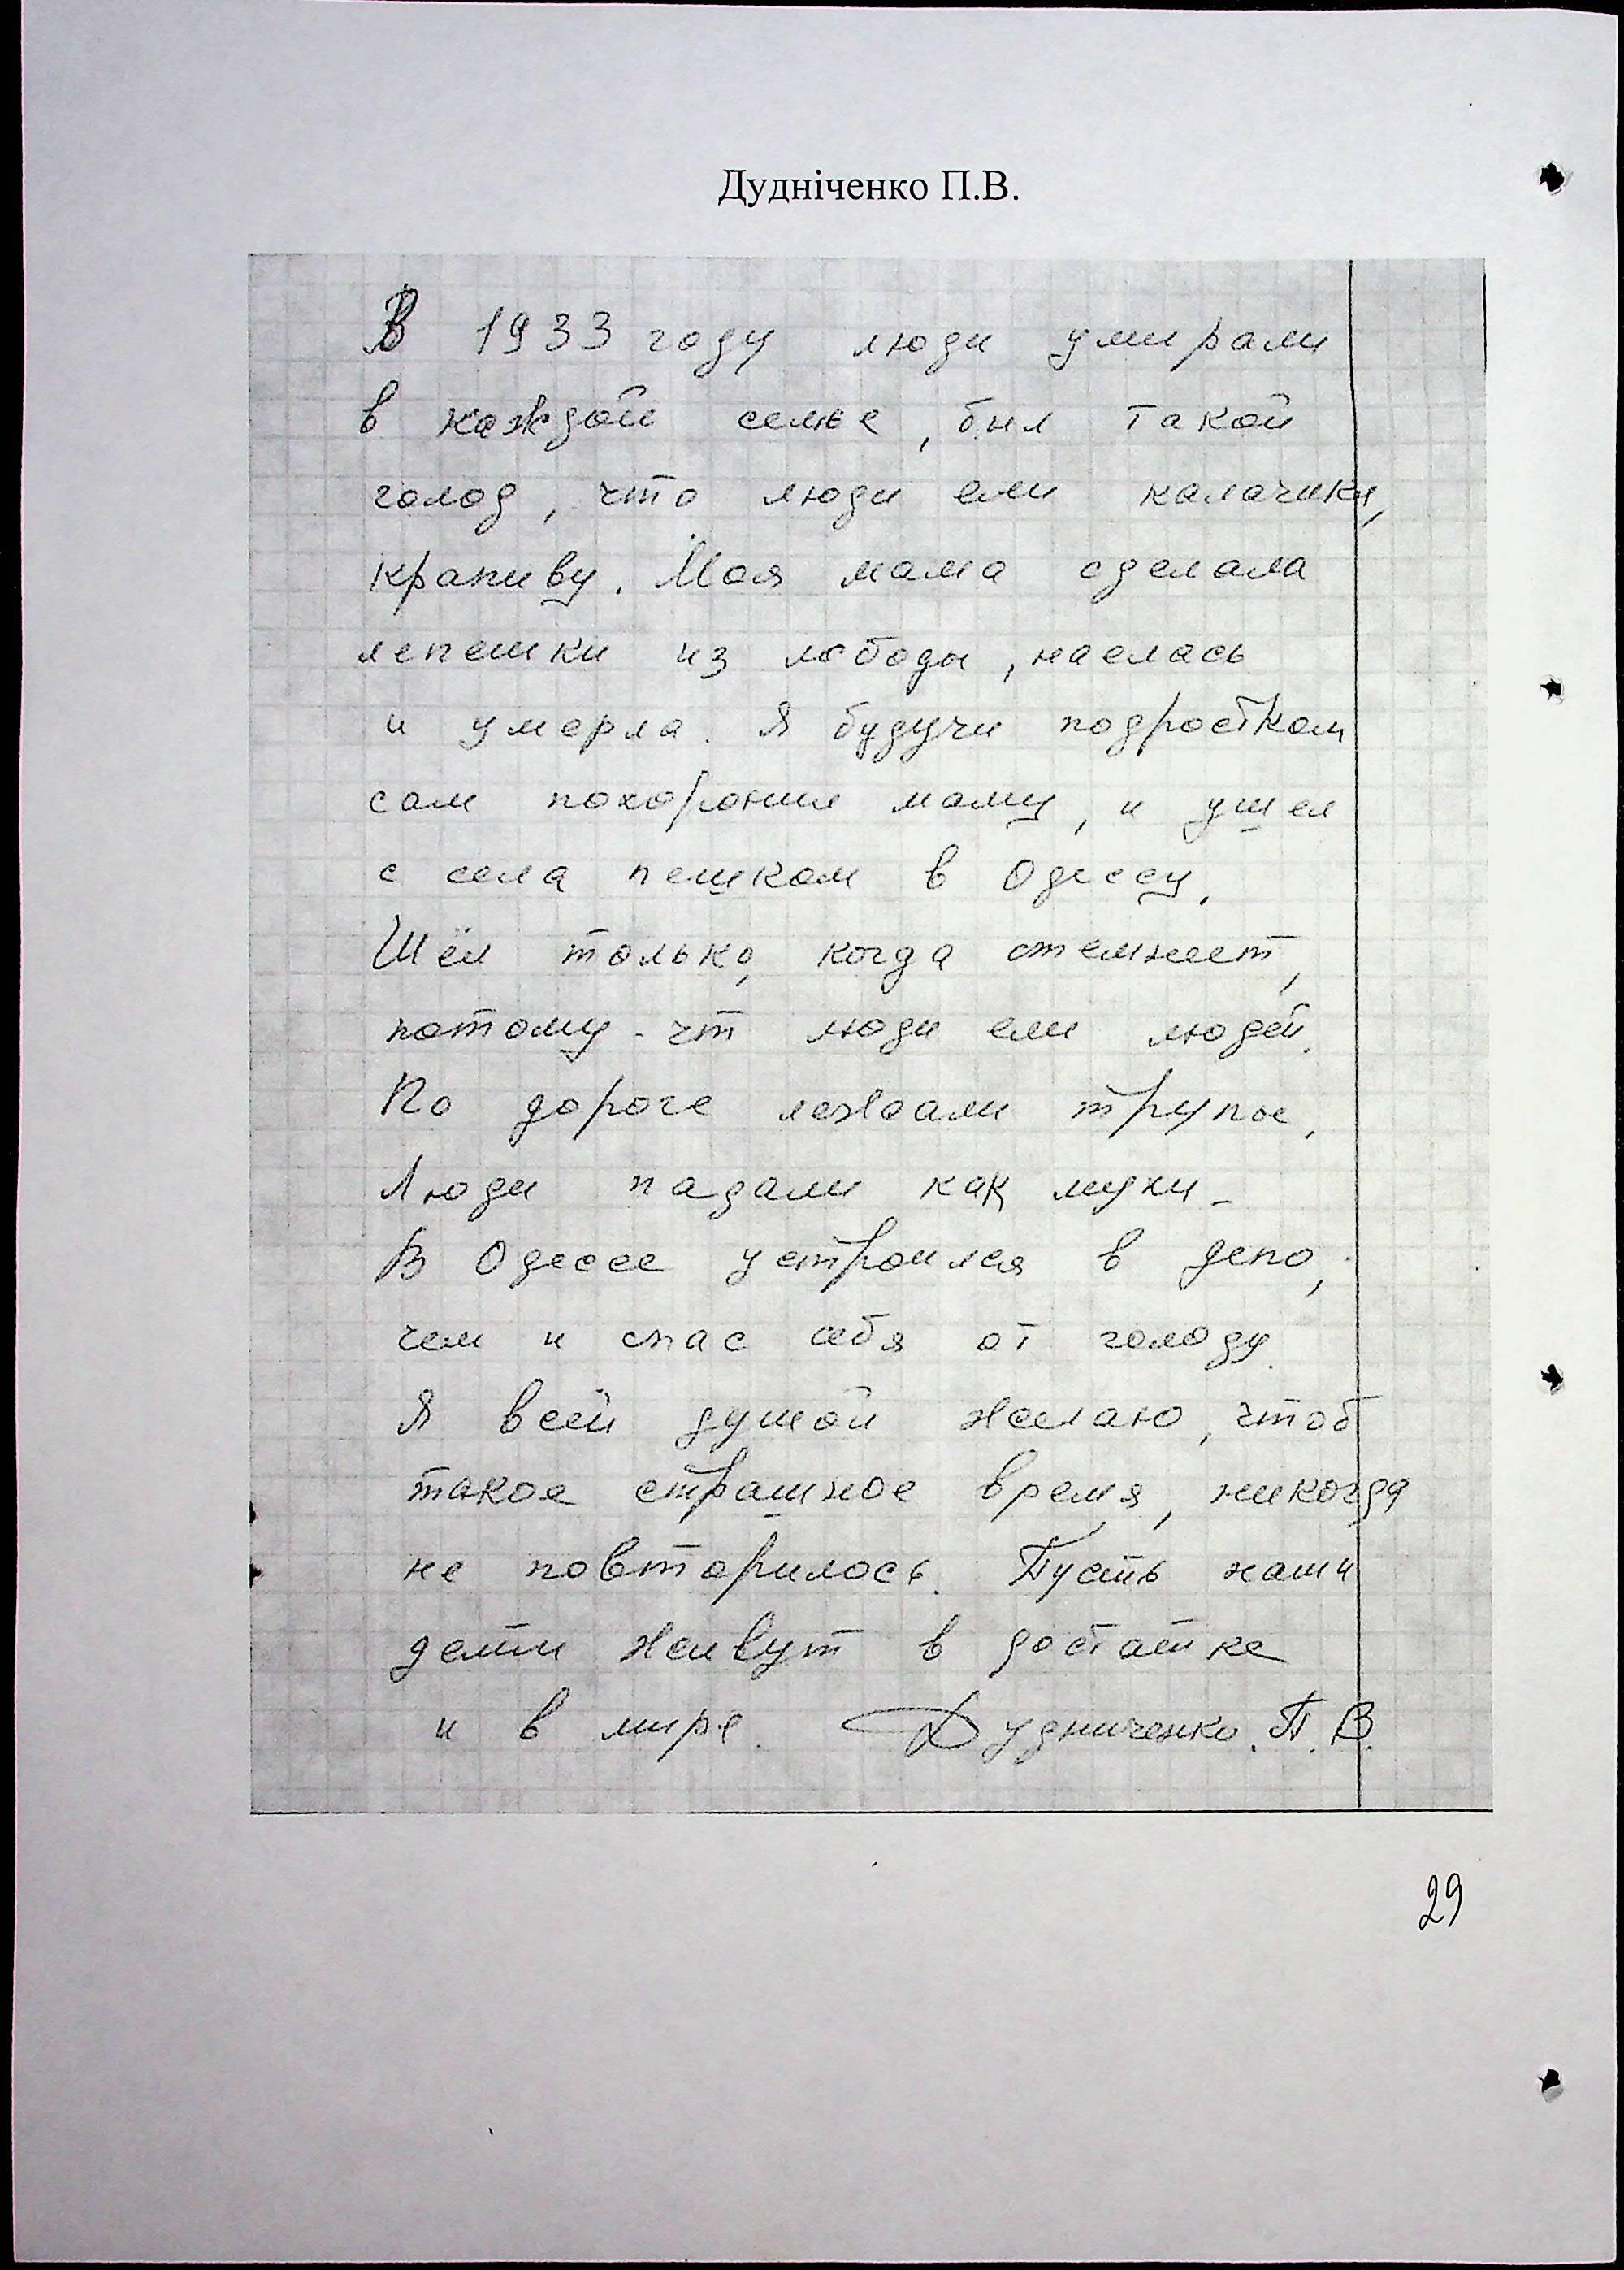 Дудніченко П.В.
В 1933 году люди умирали
в каждой семье, был такой
голод, что люди ели калачики,
крапиву. Моя мама сделала
лепешки из лободы, наелась
и умерла. Я будучи подростком
сам похоронил маму, и ушел
с села пешком в Одессу.
Шёл только, когда стемнеет,
потому-чт люди ели людей.
По дороге лежали трупы.
Люди падали как мухи-
В Одессе устроился в депо,
чем и спас себя от голоду.
Я всей душой желаю, чтоб
такое страшное время, никогда
не повторилось. Пусть наши
дети живут в достатке
и в мире. Дудниченко. П. В.
29